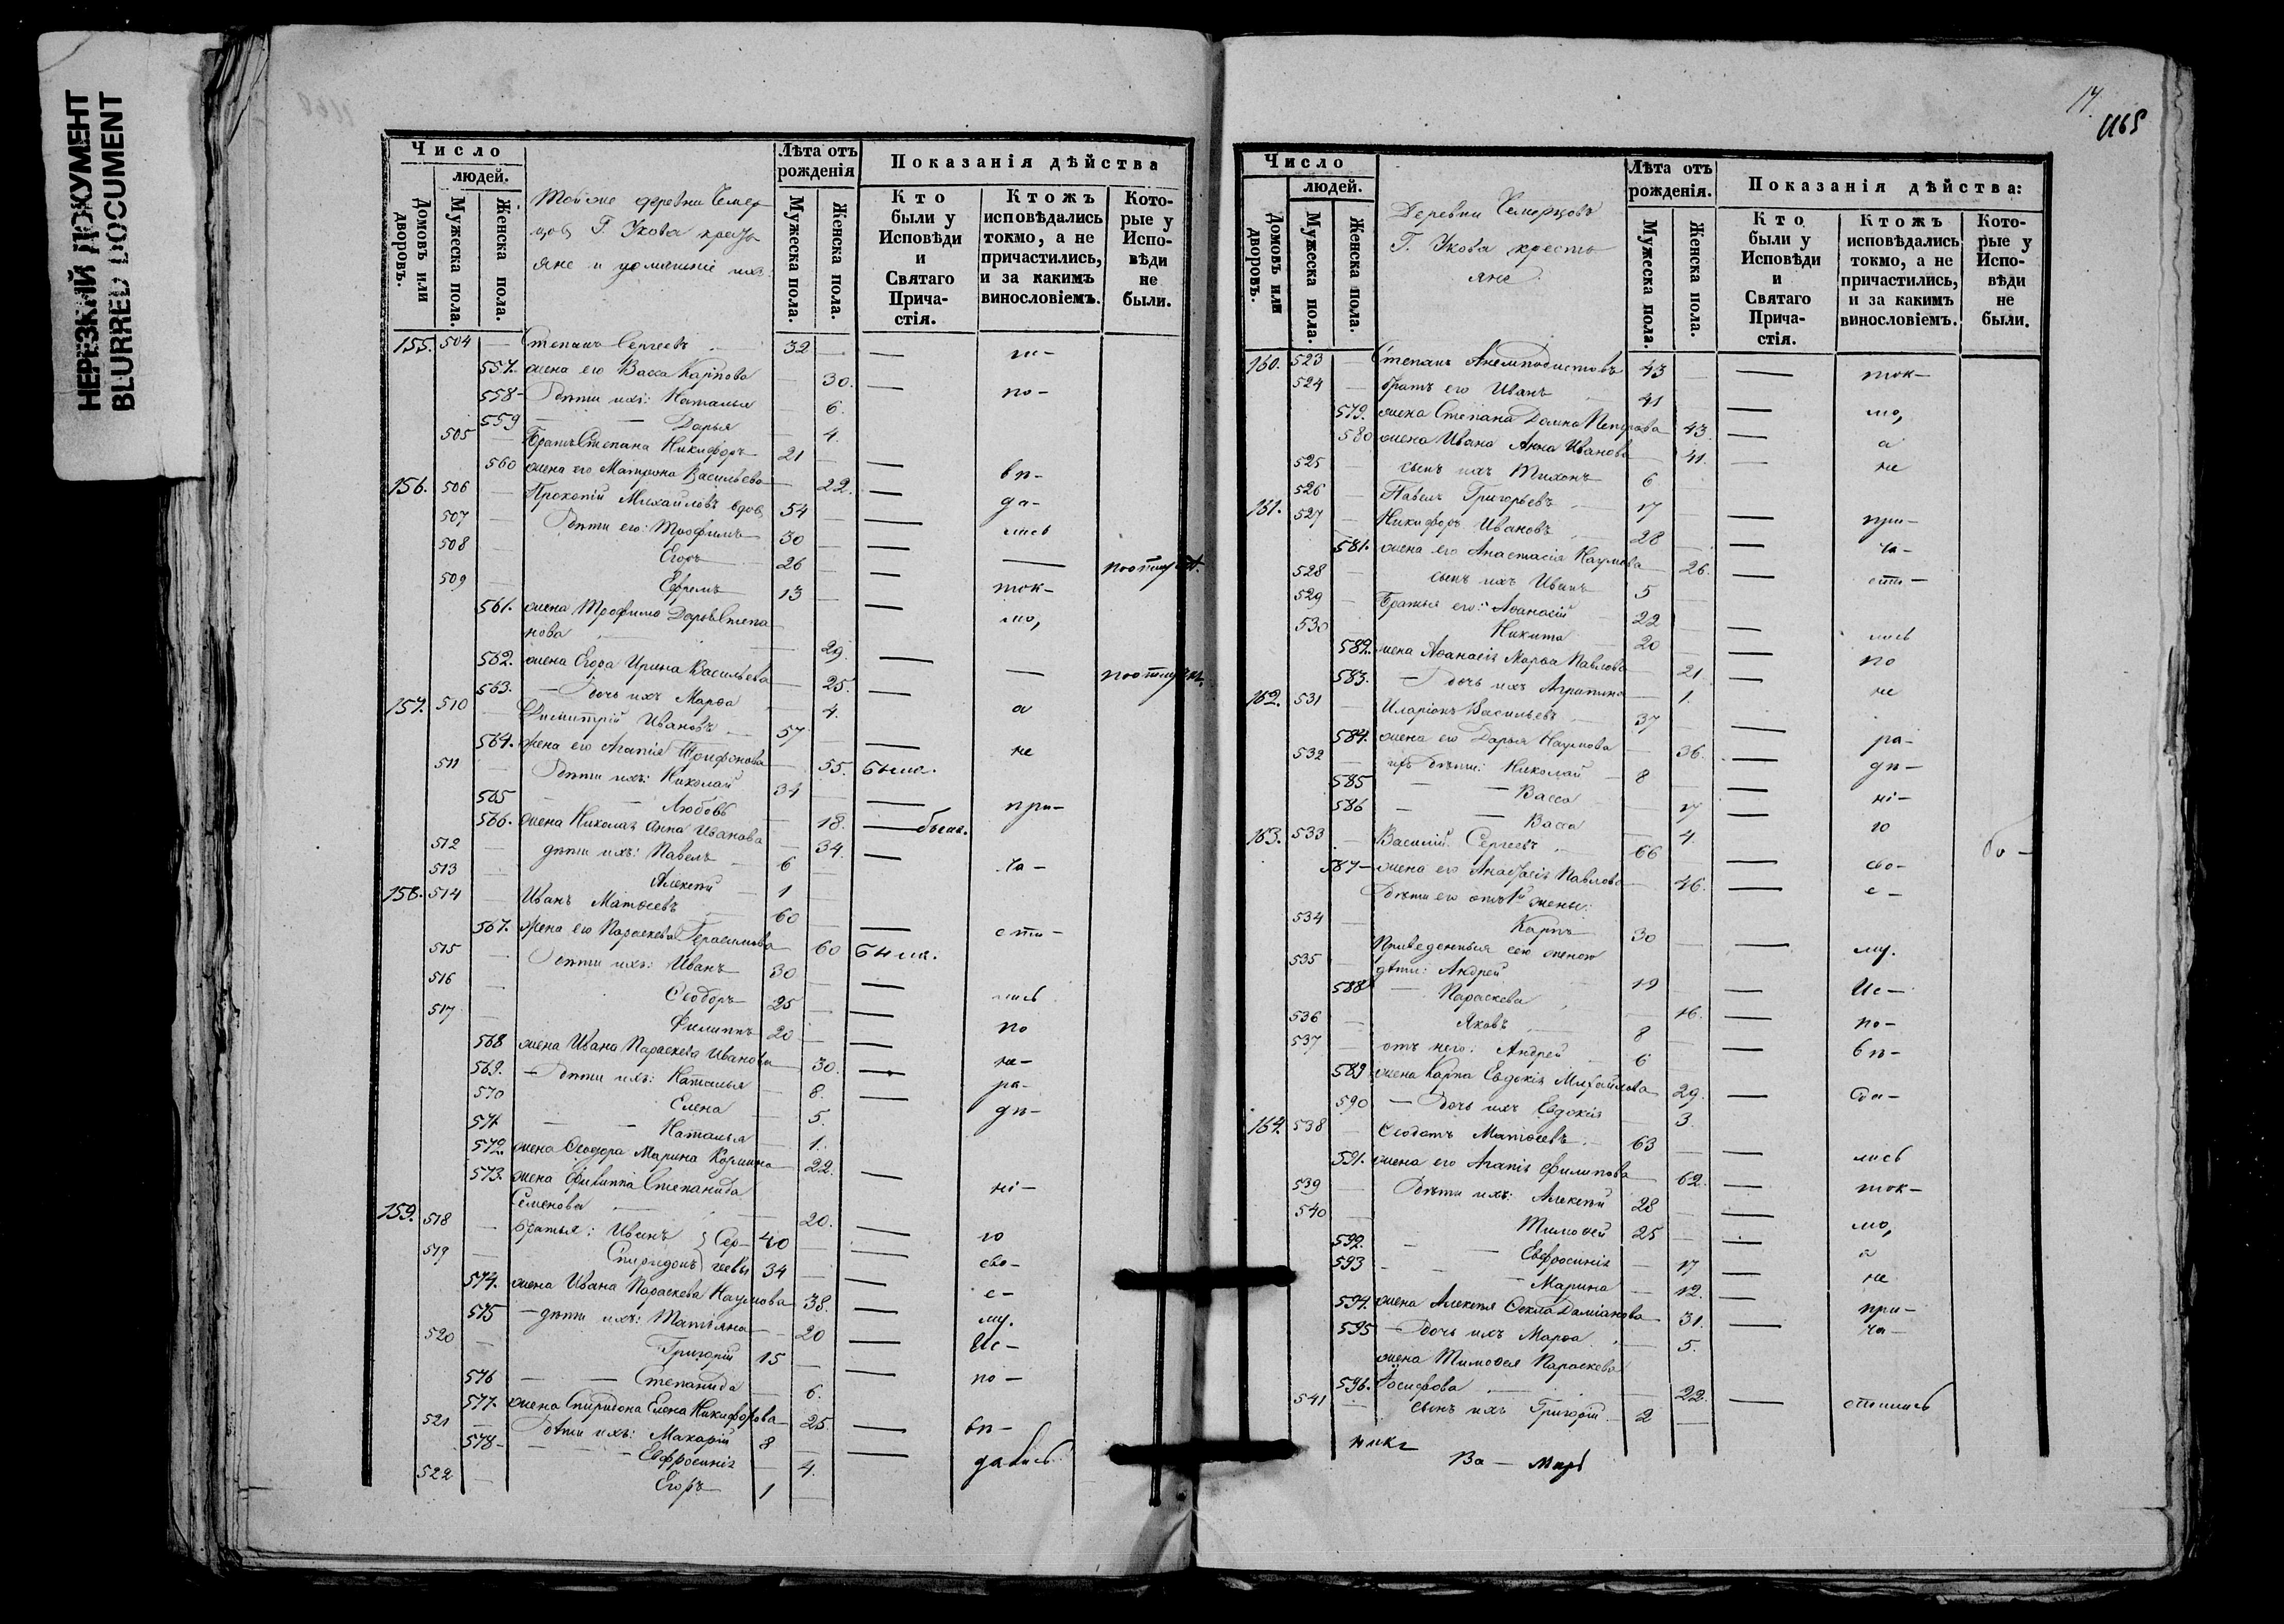 НЕРЕЗКИЙ ДОКУМЕНТ
BLURRED DOCUMENT
Число
людей.
Домовъ или дворовъ.
Мужеска пола.
Женска пола.
Той же деревни Чемер
цовъ Г. Укова кресть
яне и домашніе ихъ
Лѣта отъ рожденія
Мужеска пола.
Женска пола.
Показанія дѣйства
Кто были у Исповѣди и Святаго Прича-стія.
Ктожъ исповѣдались токмо, а не причастились, и за какимъ винословіемъ.
Кото-рые у Испо-вѣди не были.
155. 504 — Степанъ Сергеевъ 32 —
557. жена его Васса Карпова — 30. — по-
558 — Дѣти ихъ: Наталья — 6.
559 — Дарья — 4.
505 — Братъ Степана Никифоръ 21 —
560 жена его Матрона Васильева — 22. — вѣ-
156. 506 — Прокопій Михайловъ вдов 54 — — да-
507 — Дѣти его: Трофимъ 30 — — лись
508 — Егоръ 26 — —
509 — Ефремъ 13 — — ток-
561. жена Трофима Дарья Степа
нова — 29. — мо,
562. жена Егора Ирина Васильева — 25. —
563. — Дочь ихъ Марѳа — 4. а
157. 510 — Димитрій Ивановъ 57 — — не
564. жена его Агапія Трифонова — 55. была.
511 — Дѣти ихъ: Николай 34 — — при-
565 — — Любовь — 18. — была.
566. жена Николая Анна Иванова — 34. —
512 — дѣти ихъ: Павелъ 6 — ча-
513 — Алексѣй 1
158. 514 — Иванъ Матѳеевъ 60 — — сти-
567. жена его Параскева Герасимова — 60 была.
515 — Дѣти ихъ: Иванъ 30 — — лись
516 — Ѳеодоръ 25 — — по
517 — Филиппъ 20 — —
568 жена Ивана Параскева Иванова — 30. — не-
569. — Дѣти ихъ: Наталья — 8. — ра-
570 Елена — 5. дѣ-
571 — — Наталья — 1.
572. жена Ѳеодора Марина Козмина — 22. —
573. жена Филиппа Степанида
Семенова — 20. — ні-
159. 518 — братья: Иванъ } Сер- 40 — — ю
519 — Спиридонъ } геевы 34 — — сво-
574. жена Ивана Параскева Наумова — 38. — е-
575 — дѣти ихъ: Татьяна — 20 — му.
520 — Григорій 15 — — Ис-
576 — — Степанида — 6. по-
577. жена Спиридона Елена Никифорова — 25. — вѣ-
521 — Дѣти ихъ: Макарій 8 — —
578 — — Евфросинія — 4. дались
522 — Егоръ 1 —
17.
1165
Число
людей.
Домовъ или дворовъ.
Мужеска пола.
Женска пола.
Деревни Чемерцовъ
Г. Укова кресть
яне
Лѣта отъ рожденія.
Мужеска пола.
Женска пола.
Показанія дѣйства:
Кто были у Исповѣди и Святаго Прича-стія.
Ктожъ исповѣдались токмо, а не причастились, и за какимъ винословіемъ.
Кото-рые у Испо-вѣди не были.
160. 523 — Степанъ Анемподистовъ 43 — — ток-
524 — братъ его Иванъ 41 — — мо,
579. жена Степана Домна Петрова — 43. — а
580 жена Ивана Анна Иванова — 41. — не
525 сынъ ихъ Тихонъ 6
526 — Павелъ Григорьевъ 17 — — при-
161. 527 — Никифоръ Ивановъ 28 — — ча-
581. жена его Анастасія Наумова — 26. — сти-
528 — сынъ ихъ Иванъ 5
529 — Братья его: Аѳанасій 22 — — лись
530 Никита 20 — — по
582. жена Аѳанасія Марѳа Павлова — 21 — не
583. — дочь ихъ Агрипина — 1.
162. 531 — Иларіонъ Васильевъ 37 — — ра-
584. жена его Дарья Наумова — 36. — дѣ-
532 — ихъ дѣти: Николай 8 — — ні-
585 — — Васса — 17 — ю
586 — — Васса — 4.
163. 533 — Василій Сергеевъ 66 — — сво-
587 — жена его Анастасія Павлова — 46. — е-
Дѣти его отъ 1й жены:
534 — Карпъ 30 — — му.
Приведенныя сею женою
535 — дѣти: Андрей 19 — Ис-
588 — Параскева — 16. — по-
536 — Яковъ 8 — — вѣ-
537 — отъ него: Андрей 6
589 жена Карпа Евдокія Михайлова — 29. — да-
590 — Дочь ихъ Евдокія — 3.
164. 538 — Ѳеодотъ Матѳеевъ 63 — — лись
591. жена его Агапія Филипова — 62. — ток-
539 — Дѣти ихъ: Алексѣй 28 — — мо,
540 — Тимоѳей 25 — — а
592. — — Евфросинія — 17 — не
593 — — Марина — 12. — при-
594. жена Алексѣя Ѳекла Даміанова — 31. — ча-
595 — дочь ихъ Марѳа — 5.
жена Тимоѳея Параскева
596. Іосифова — 22. — стились
541 — сынъ ихъ Григорій 2 —